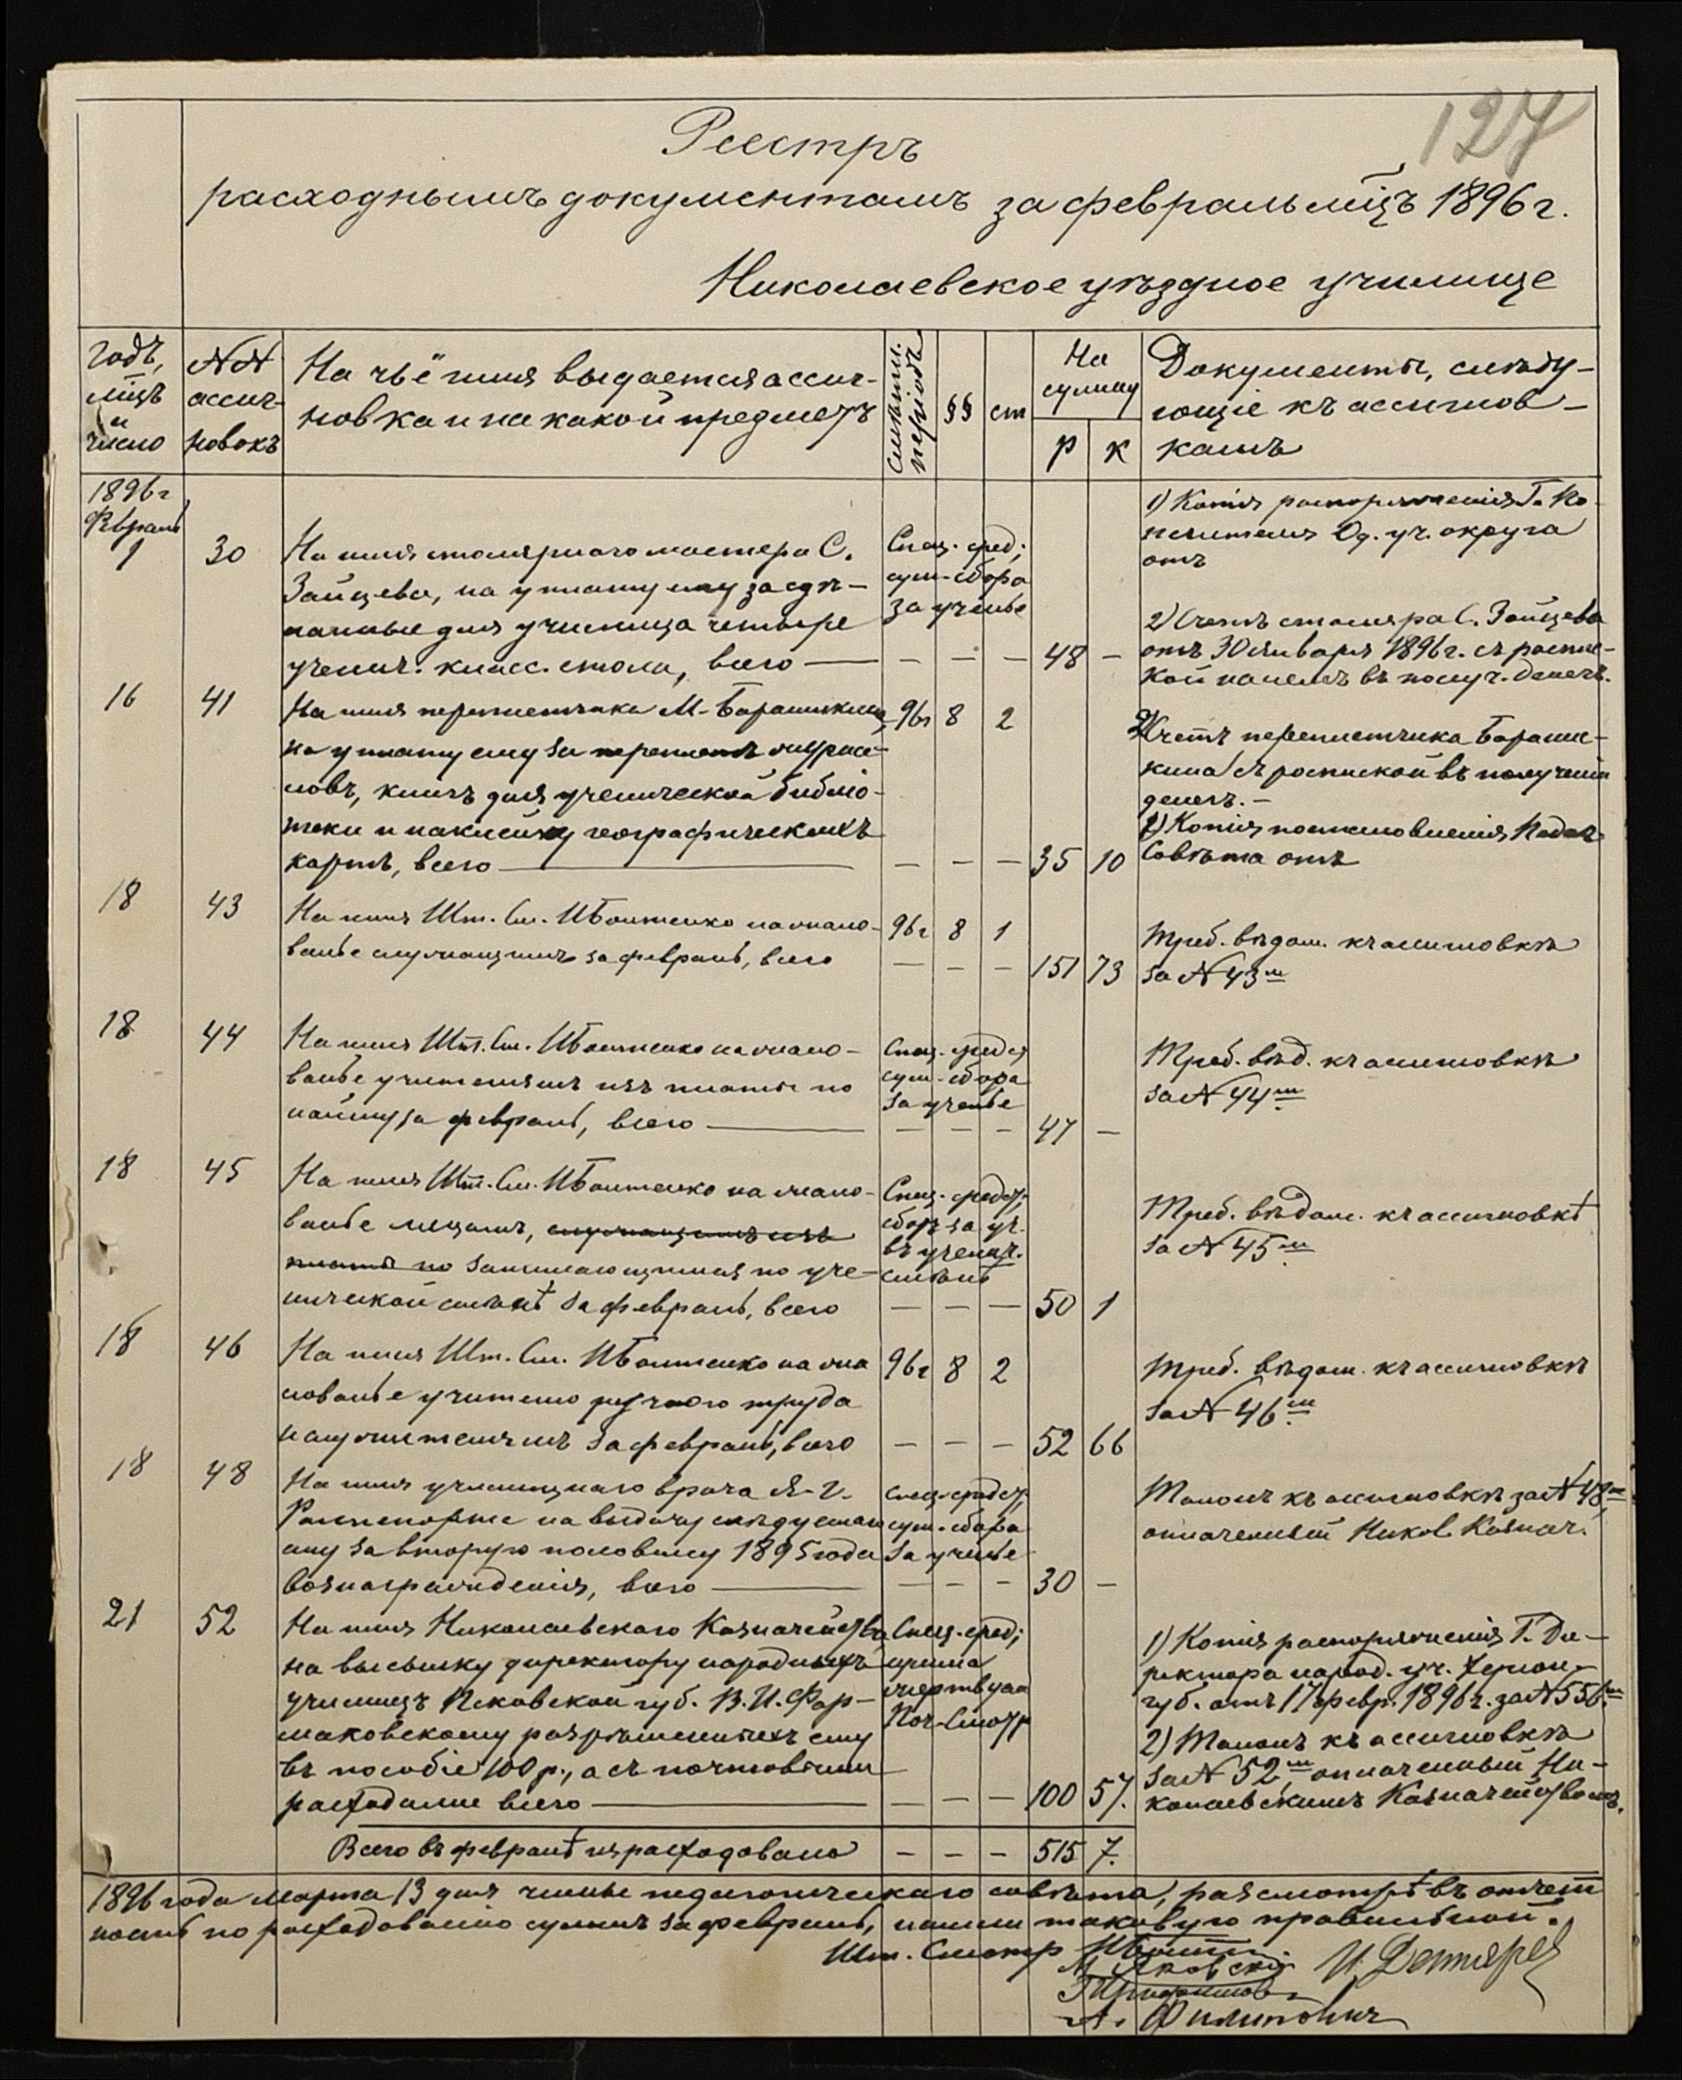 127
Реестръ
расходнымъ документамъ за февраль мѣцъ 1896 г.
Николаевское уѣздное училище
Годъ, мѣцъ и число
№№ ассигновокъ
На чьё имя выдается ассиг-
новка и на какой предметъ
Смѣтный періодъ
§§
ст
На сумму
р
к
Документы, слѣду-
ющіе къ ассигнов-
камъ
1896 г
Февраль
1
30
На имя столярнаго мастера С.
Зайцева, на уплату ему за сдѣ-
ланные для училища четыре
ученич. класс. стола, всего
Спец. сред;
сум. сбора
за ученье
— — — 48 —
1) Копія распоряженія Г. По-
печителя Од. уч. округа
отъ
2) Счетъ столяра С. Зайцева
отъ 30 Января 1896 г. съ распис-
кой на немъ въ получ. денегъ.
16
41
На имя переплетчика М.
на уплату ему за переплетъ журна-
ловъ, книгъ для ученической библіо-
теки и наклейку географическихъ
картъ, всего
96 г
8
2
— — — 35 10
Счетъ переплетчика
съ роспиской въ полученіи
денегъ. —
1) Копія постановленія Педаг.
Совѣта отъ
18
43
На имя Шт. См. на жало-
ванье служащимъ за февраль, всего
96 г
8
1
— — — 151 73
Треб. вѣдом. къ ассигновкѣ
за № 43 м
18
44
На имя Шт. См. на жало-
ванье учителямъ изъ платы по
найму за февраль, всего
Спец. средст
сум. сбора
за ученье
— — — 47 —
Треб. вѣд. къ ассигновкѣ
за № 44 м
18
45
На имя Шт. См. на жало-
ванье лицамъ, служащимъ изъ
платы по занимающимся по уче-
нической смѣнѣ за февраль, всего
Спец. средст,
сборъ за уч.
въ ученич.
— — — 50 1
Треб. вѣдом. къ ассигновкѣ
за № 45 м
18
46
На имя Шт. См. на жа
лованье учителю ручного труда
за февраль, всего
96 г
8
2
— — — 52 66
Треб. вѣдом. къ ассигновкѣ
за № 46 м
18
48
На имя училищнаго врача
на выдачу слѣдуемаго
ему за вторую половину 1895 года
вознагражденія, всего
спец. средст,
сум. сбора
за ученье
— — — 30 —
Талонъ къ ассигновкѣ за № 48 м
оплаченный Никол. Казнач.
21
52
На имя Николаевскаго Казначейства
на высылку директору народныхъ
училищъ Псковской губ. В. И. Фар-
маковскому разрѣшенныхъ ему
въ пособіе 100 р., а съ почтовыми
расходами всего
Спец. сред;
Поч. Смотр
— — — 100 57.
1) Копія распоряженія Г. Ди-
ректора народ. уч. Херсон.
губ. отъ 17 февр. 1896 г. за № 556 м
2) Талонъ къ ассигновкѣ
за № 52 м оплаченный Ни-
колаевскимъ Казначействомъ.
Всего въ февралѣ израсходовано — — — 515 7.
1896 года Марта 13 дня члены педагогическаго совѣта, разсмотрѣвъ отчет
ность по расходованію суммъ за февраль, нашли таковую правильной.
Шт. Смотр
И. Дегтярев
А. Филиповичъ